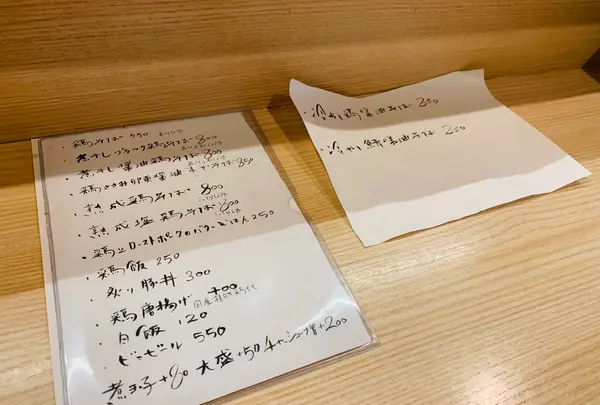 ・鶏そば 750
・煮干しブラック鶏そば 800
・煮干し醤油鶏そば 800
・鶏ささみ卵黄醤油まぜそば 850
・熟成鶏そば 800
・熟成塩鶏そば 800
・鶏とローストポークのバターごはん 250
・鶏飯 250
・炙り豚丼 300
・鶏唐揚げ 400
・白飯 120
・ビンビール 550
煮玉子+80 大盛+50 チャーシュー増+200
・冷やし鶏醤油そば
・冷やし 醤油そば